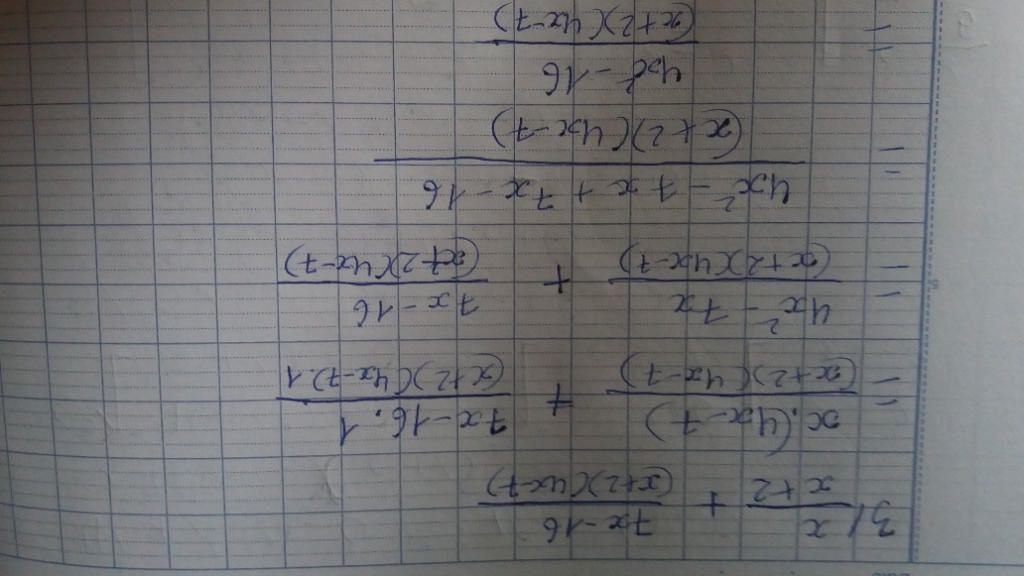 3/ x/(x+2) + (7x-16)/((x+2)(4x-7))
= (x.(4x-7))/((x+2)(4x-7)) + (7x-16.1)/((x+2)(4x-7).1)
= (4x²-7x)/((x+2)(4x-7)) + (7x-16)/((x+2)(4x-7))
= (4x²-7x+7x-16)/((x+2)(4x-7))
= (4x²-16)/((x+2)(4x-7))